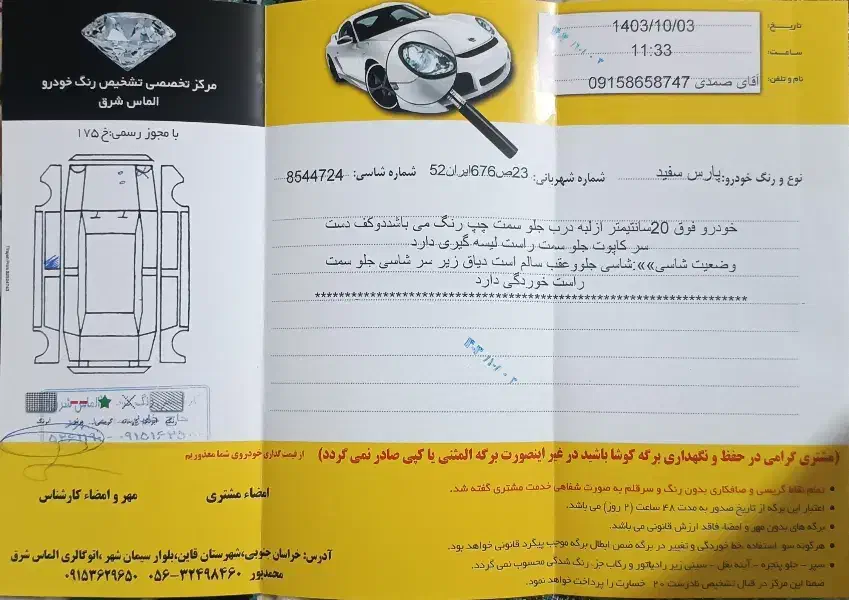 مرکز تخصصی تشخیص رنگ خودرو
الماس شرق
با مجوز رسمی:خ ۱۷۵
تاریخ: 1403/10/03
ساعت: 11:33
نام و تلفن: آقای صمدی 09158658747
نوع و رنگ خودرو: پارس سفید شماره شهربانی: 23ص676ایران52 شماره شاسی: 8544724
خودرو فوق 20سانتیمتر ازلبه درب جلو سمت چپ رنگ می باشددوکف دست
سر کاپوت جلو سمت راست لیسه گیری دارد
وضعیت شاسی»»:شاسی جلووعقب سالم است دیاق زیر سر شاسی جلو سمت
راست خوردگی دارد
********************************************************************
(مشتری گرامی در حفظ و نگهداری برگه کوشا باشید در غیر اینصورت برگه المثنی یا کپی صادر نمی گردد) از قیمت گذاری خودروی شما معذوریم
تمام نقاط گریسی و صافکاری بدون رنگ و سرقلم به صورت شفاهی خدمت مشتری گفته شد.
اعتبار این برگه از تاریخ صدور به مدت ۴۸ ساعت (۲ روز) می باشد.
برگه های بدون مهر و امضاء فاقد ارزش قانونی می باشد.
هرگونه سوء استفاده ،خط خوردگی و تغییر در برگه ضمن ابطال برگه موجب پیگرد قانونی خواهد بود.
سپر - جلو پنجره - آینه بغل - سینی زیر رادیاتور و رکاب جزء رنگ شدگی محسوب نمی گردد.
ضمنا این مرکز در قبال تشخیص نادرست ۲۰ خسارت را پرداخت خواهد نمود.
امضاء مشتری
مهر و امضاء کارشناس
آدرس: خراسان جنوبی،شهرستان قاین،بلوار سیمان شهر ،اتوگالری الماس شرق
محمدپور ۳۲۴۹۸۴۶۰-۰۵۶ ۰۹۱۵۳۶۲۹۶۵۰